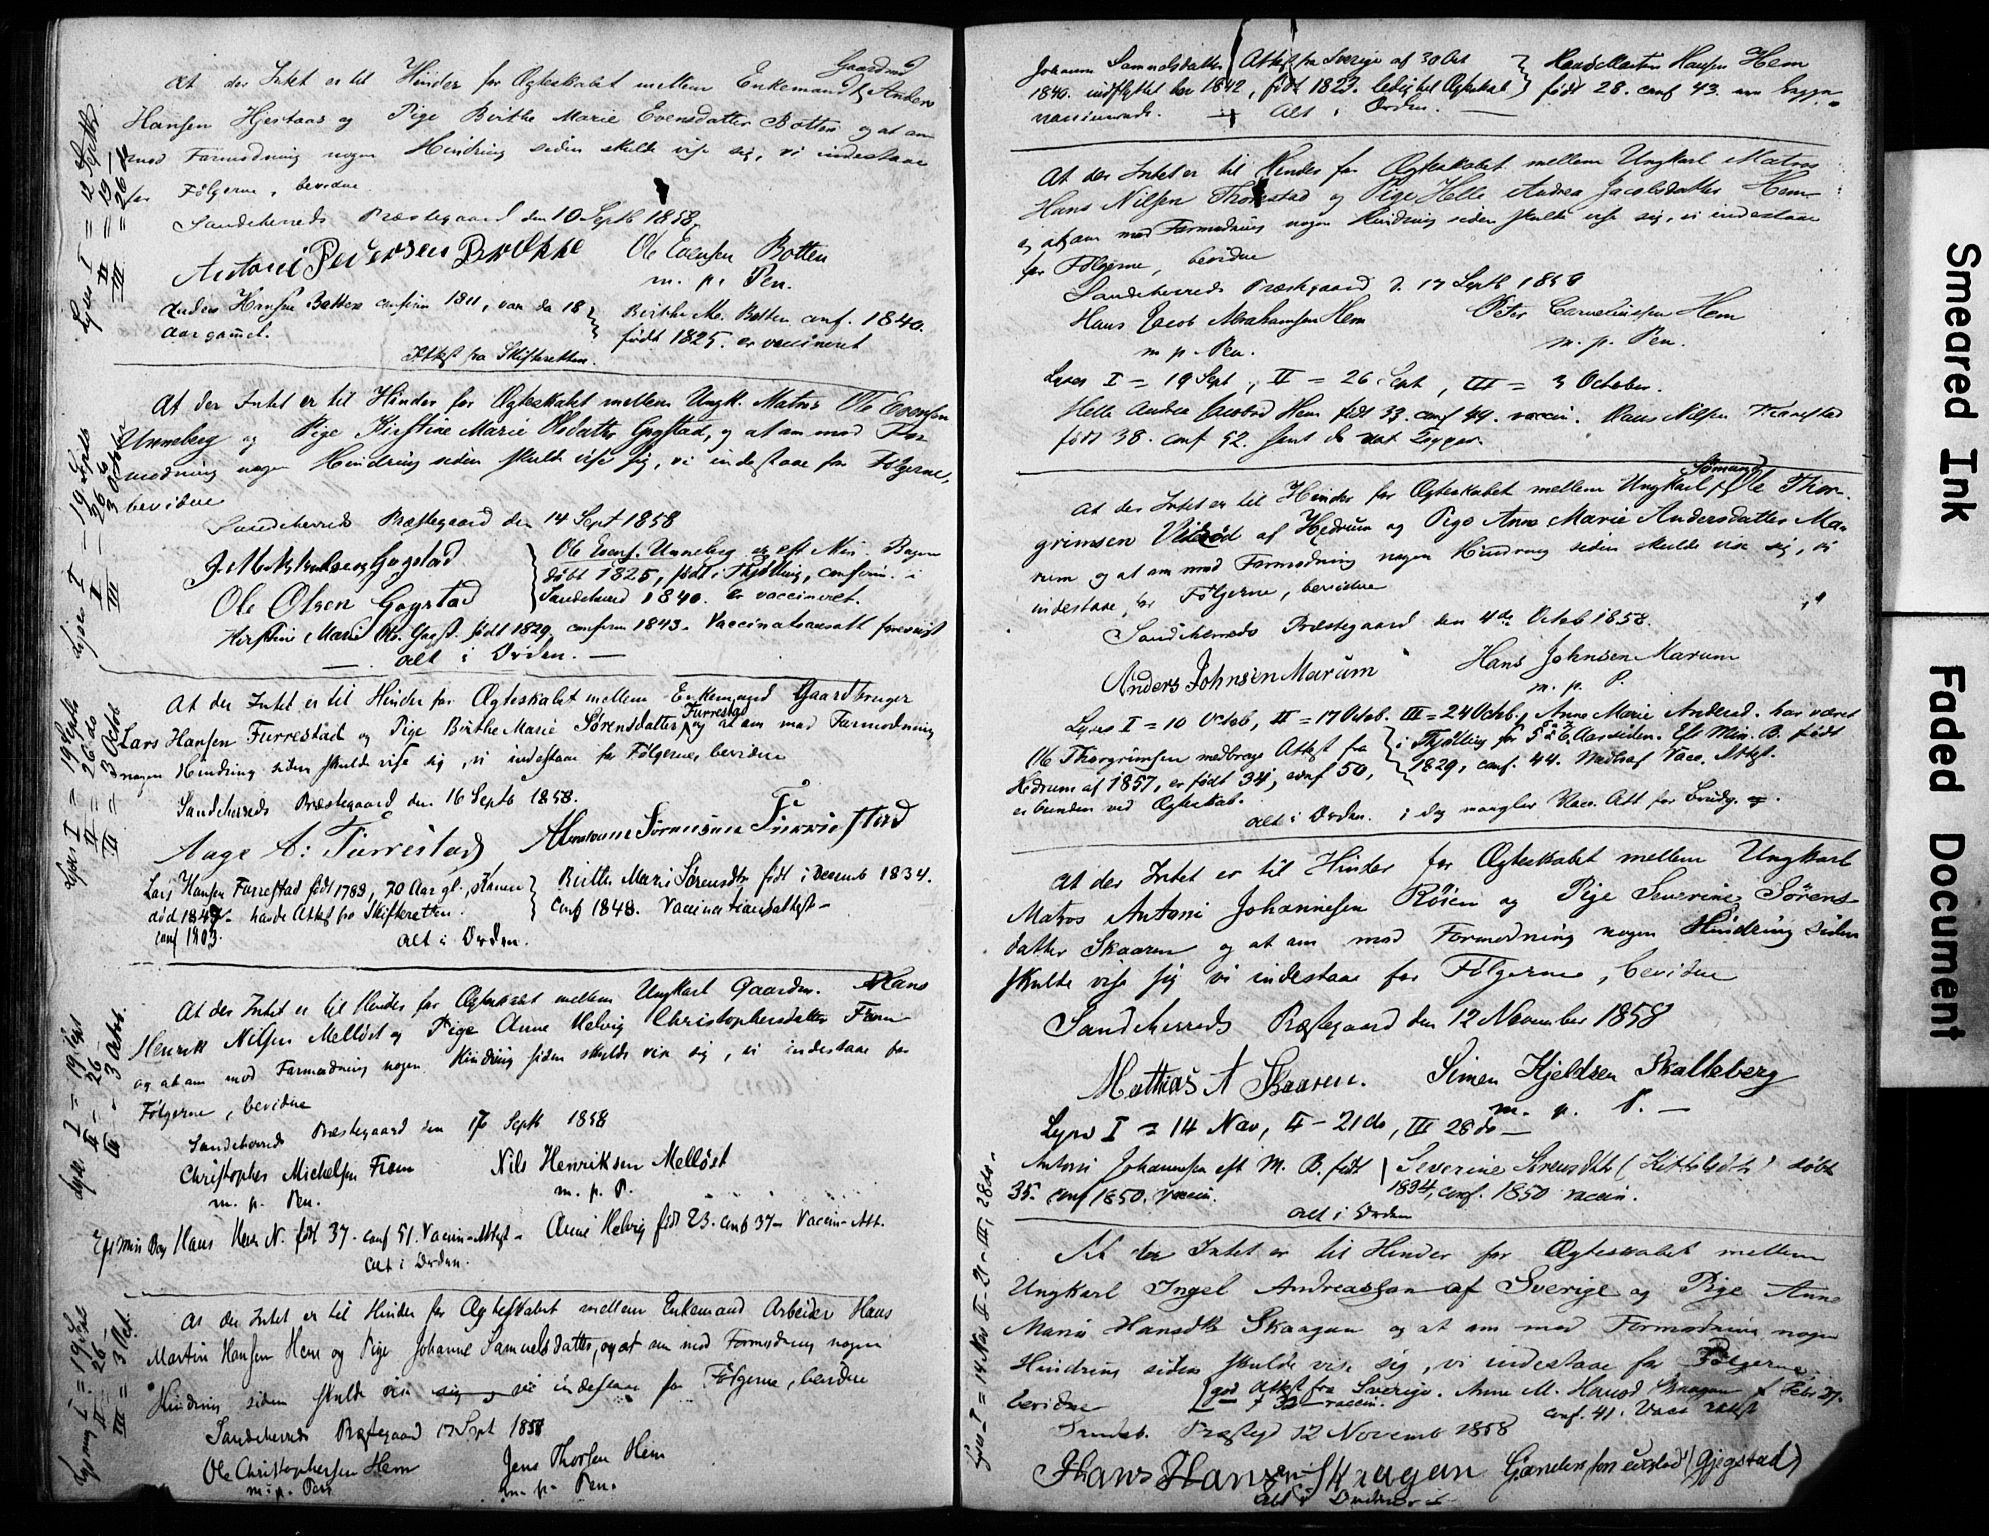 At der Intet er til Hinder for Ægteskabet mellem Enkemand Gaardmd Anders
Hansen Hjestaas og Pige Birthe Marie Evensdatter Botten og at om
mod Formodning nogen Hindring siden skulde vise sig, vi indestaae
for Følgerne, bevidne
Sandeherreds Præstegaard den 10 Septb 1858
Antoni Pedersen Brække Ole Evensen Botten
m. p. Pen.
Anders Hansen Botten confirm 1811, var da 18
Aar gammel.
Attest fra Skifteretten.
Birthe M. Botten conf. 1840.
født 1825. er vaccineret
Lyses I = 12 Septbr.
II = 19 —
III = 26 do
At der Intet er til Hinder for Ægteskabet mellem Ungk. Matros Ole Evensen
Unneberg og Pige Kirstine Marie Olsdatter Gogstad, og at om mod For
modning nogen Hindring siden skulde vise sig, vi indestaae for Følgerne,
bevidne
Sandeherreds Præstegaard den 14 Sept 1858
Gogstad
Ole Olsen Gogstad
Ole Evens. Unneberg er eft Min. Bogen
døbt 1825, født i Thjølling, confirm. i
Sandeherred 1840. Er vaccineret.
Kirstine Marie Ols. Gogst. født 1829, confirm 1843. Vaccinationsatt forevist
— Alt i Orden. —
Lyses I — 19 Septb
II — 26
III — 3 October
At der Intet er til Hinder for Ægteskabet mellem Enkemand Gaardbruger
Lars Hansen Furrestad og Pige Birthe Marie Sørensdatter Furrestad og at om mod Formodning
nogen Hindring siden skulde vise sig, vi indestaae for Følgerne, bevidne
Sandeherreds Præstegaard den 16 Septb 1858.
Aage A: Furrestad Abraham Sørensen Furrestad
Lars Hansen Furrestad født 1789, 70 Aar gl., Konen
død 184 - havde Attest fra Skifteretten.
conf 1803.
Birthe Marie Sørensdtr født i Decemb 1834.
conf 1848. Vaccinationsattest —
Alt i Orden.
Lyses I = 19 Septb
II = 26 do
III = 3 Octob
At der Intet er til Hinder for Ægteskabet mellem Ungkarl Gaardm. Hans
Henrik Nilsen Melløst og Pige Anne Helvig Christophersdatter Fram
og at om mod Formodning nogen Hindring siden skulde vise sig, vi indestaae for
Følgerne, bevidne
Sandeherreds Præstegaard den 17 Septb 1858
Christopher Michelsen Fram Nils Henriksen Melløst
m. p. Pen. m. p. P.
Eft Min Bog Hans Henr N. født 37. conf 51. Vaccin-Attest — Anne Helvig født 23. conf 37 — Vaccin-Att.
Alt i Orden.
Lyses I — 19 Sept
II — 26 —
III — 3 Octob.
At der Intet er til Hinder for Ægteskabet mellem Enkemand Arbeider Hans
Martin Hansen Hem og Pige Johanne Samuelsdatter, og at om mod Formodning nogen
Hindring siden skulde vise sig, vi indestaae for Følgerne, bevidne
Sandeherreds Præstegaard 17 Sept 1858
Ole Christophersen Hem Jens Thorsen Hem
m. p. Pen m. p. Pen.
Lysning I = 19 Sept
II = 26 —
III = 3 Oct.
Johanne Samuelsdatter Attest fra Sverige af 30 Oct
1840. indflyttet her 1842, født 1823. ledig til Ægteskab
vaccinerede. — Alt i Orden. —
Hans Martin Hansen Hem
født 28. conf 43.
At der Intet er til Hinder for Ægteskabet mellem Ungkarl Matros
Hans Nilsen Thorstad og Pige Helle Andrea Jacobsdatter Hem
og at om mod Formodning nogen Hindring siden skulde vise sig, vi indestaae
for Følgerne, bevidne
Sandeherreds Præstegaard d. 17 Septb 1858
Hans Jacob Abrahamsen Hem Peter Corneliussen Hem
m. p. Pen. m. p. Pen.
Lyses I = 19 Sept., II = 26 Sept, III = 3 October.
Helle Andrea Jacobsd Hem født 33. conf 49. vaccin. Hans Nilsen
født 38. conf 52.
At der Intet er til Hinder for Ægteskabet mellem Ungkarl Sømand Ole Thor-
grimsen Vidrød af Hedrum og Pige Anne Marie Andersdatter Ma-
rum og at om mod Formodning nogen Hindring siden skulde vise sig, vi
indestaae for Følgerne, bevidne
Sandeherreds Præstegaard den 4de Octob 1858.
Anders Johnsen Marum Hans Johnsen Marum
m. p. P.
Lyses I = 10 Octob, II = 17 Octob. III = 24 Octb.
Ole Thorgrimsen medbragt Attest fra
Hedrum af 1857, er født 34, conf 50,
ubunden ved Ægteskab.
Anne Marie Andersd. har været
i Thjølling for 5 a 6 Aar siden. Eft Min. B. født
1829, conf. 44. Vacc. Attest.
Alt i Orden. i dag mangler Vacc. Att for Brudg.
At der Intet er til Hinder for Ægteskabet mellem Ungkarl
Matros Antoni Johannesen Røien og Pige Severine Sørens-
datter Skaaren og at om mod Formodning nogen Hindring siden
skulde vise sig vi indestaae for Følgerne, bevidne
Sandeherreds Præstegaard den 12 November 1858
Mathias A Skaaren. Simen Kjeldsen Skalleberg
m. p. P. —
Lyses I = 14 Nov, II — 21 do, III 28 do —
Antoni Johannesen eft M. B. født
35. conf 1850. vaccin.
Severine Sørensdtr døbt
1834, conf. 1850 vaccin.
Alt i Orden
At der Intet er til Hinder for Ægteskabet mellem
Ungkarl Ingel Andreasson af Sverige og Pige Anne
Marie Hansdtr Skaagan og at om mod Formodning nogen
Hindring siden skulde vise sig, vi indestaae for Følgerne,
bevidne
god Attest fra Sverige. Anne M. Hansd Skaagan f Febr 27.
f 32 — vaccin. conf. 41. Vacc Attest
Sandeh. Præstegd 12 Novemb 1858
Hans Hansen Skaagan (Gjogstad)
Alt i Orden
Lyses I = 14 Nov II — 21 — III, 28 do —
Smeared Ink
Faded Document